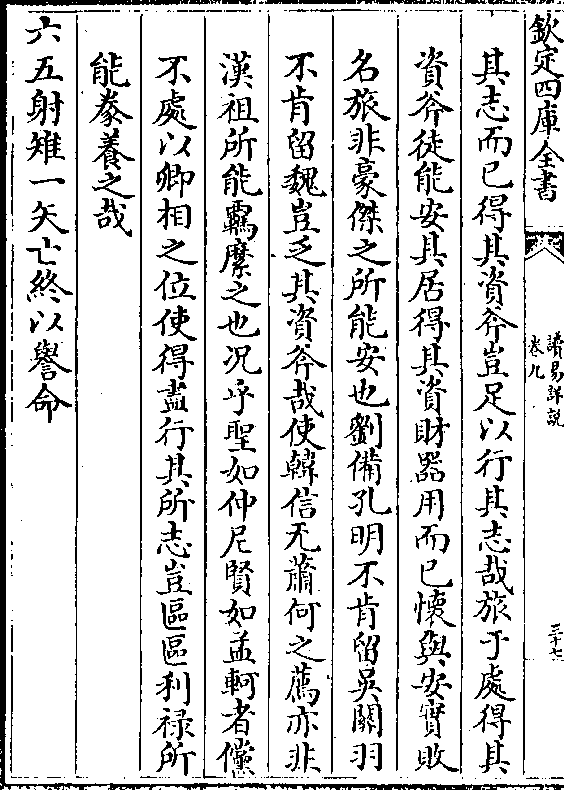 欽定四庫全書
讀易詳說
卷九
三十七
其志而已得其資斧豈足以行其志哉旅于處得其
資斧徒能安其居得其資財器用而已懷與安實敗
名旅非豪傑之所能安也劉備孔明不肯留吳關羽
不肯留魏豈乏其資斧哉使韓信无蕭何之薦亦非
漢祖所能羈縻之也况乎聖如仲尼賢如孟軻者儻
不處以卿相之位使得盡行其所志豈區區利禄所
能豢養之哉
六五射雉一矢亡終以譽命